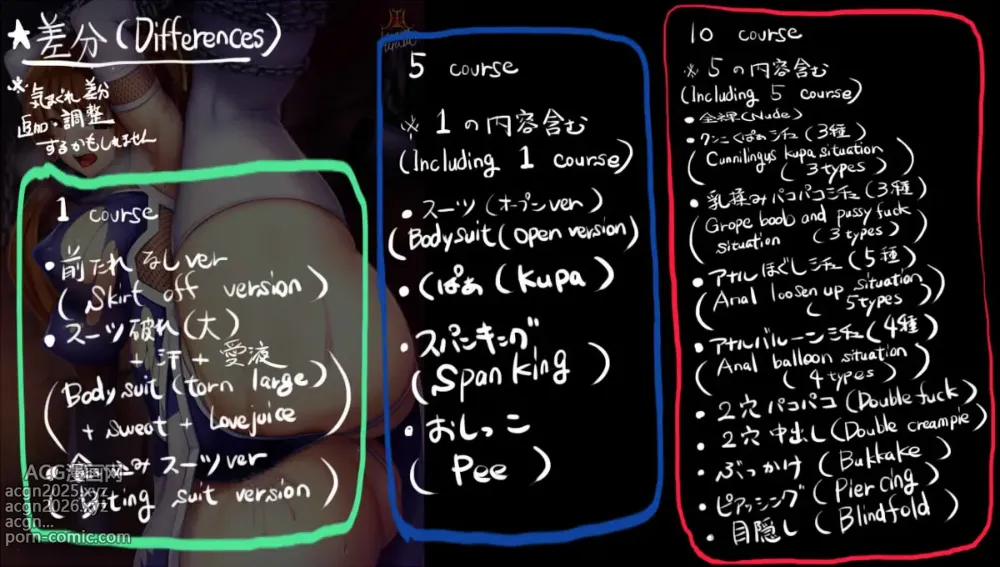 ★差分(Differences)
※気まぐれ差分
追加・調整
するかもしれません
1 course
・前たれなしver
(Skirt off version)
・スーツ破れ(大)
+汗+愛液
(Bodysuit(torn large)
+sweat+Lovejuice)
込みスーツver
(Biting suit version)
5 course
※1の内容含む
(Including 1 course)
・スーツ(オープンver)
(Bodysuit(open version)
・くぱぁ(Kupa)
・スパンキング
(Spanking)
・おしっこ
(Pee)
10 course
※5の内容含む
(Including 5 course)
・全裸(Nude)
・クンニくぱぁシチュ(3種)
(Cunnilingys kupa situation
(3types)
・乳揉みパコパコシチュ(3種)
(Grope boob and pussy fuck
situation (3types)
・アナルほぐしシチュ(5種)
(Anal loosen up situation
(5types)
・アナルバルーンシチュ(4種)
(Anal balloon situation
(4types)
・2穴パコパコ(Double fuck)
・2穴中出し(Double creampie)
・ぶっかけ(Bukkake)
・ピアッシング(Piercing)
・目隠し(Blindfold)
ACG漫画网
acgn2025.xyz
acgn2026.xyz
acgn...
porn-comic.com